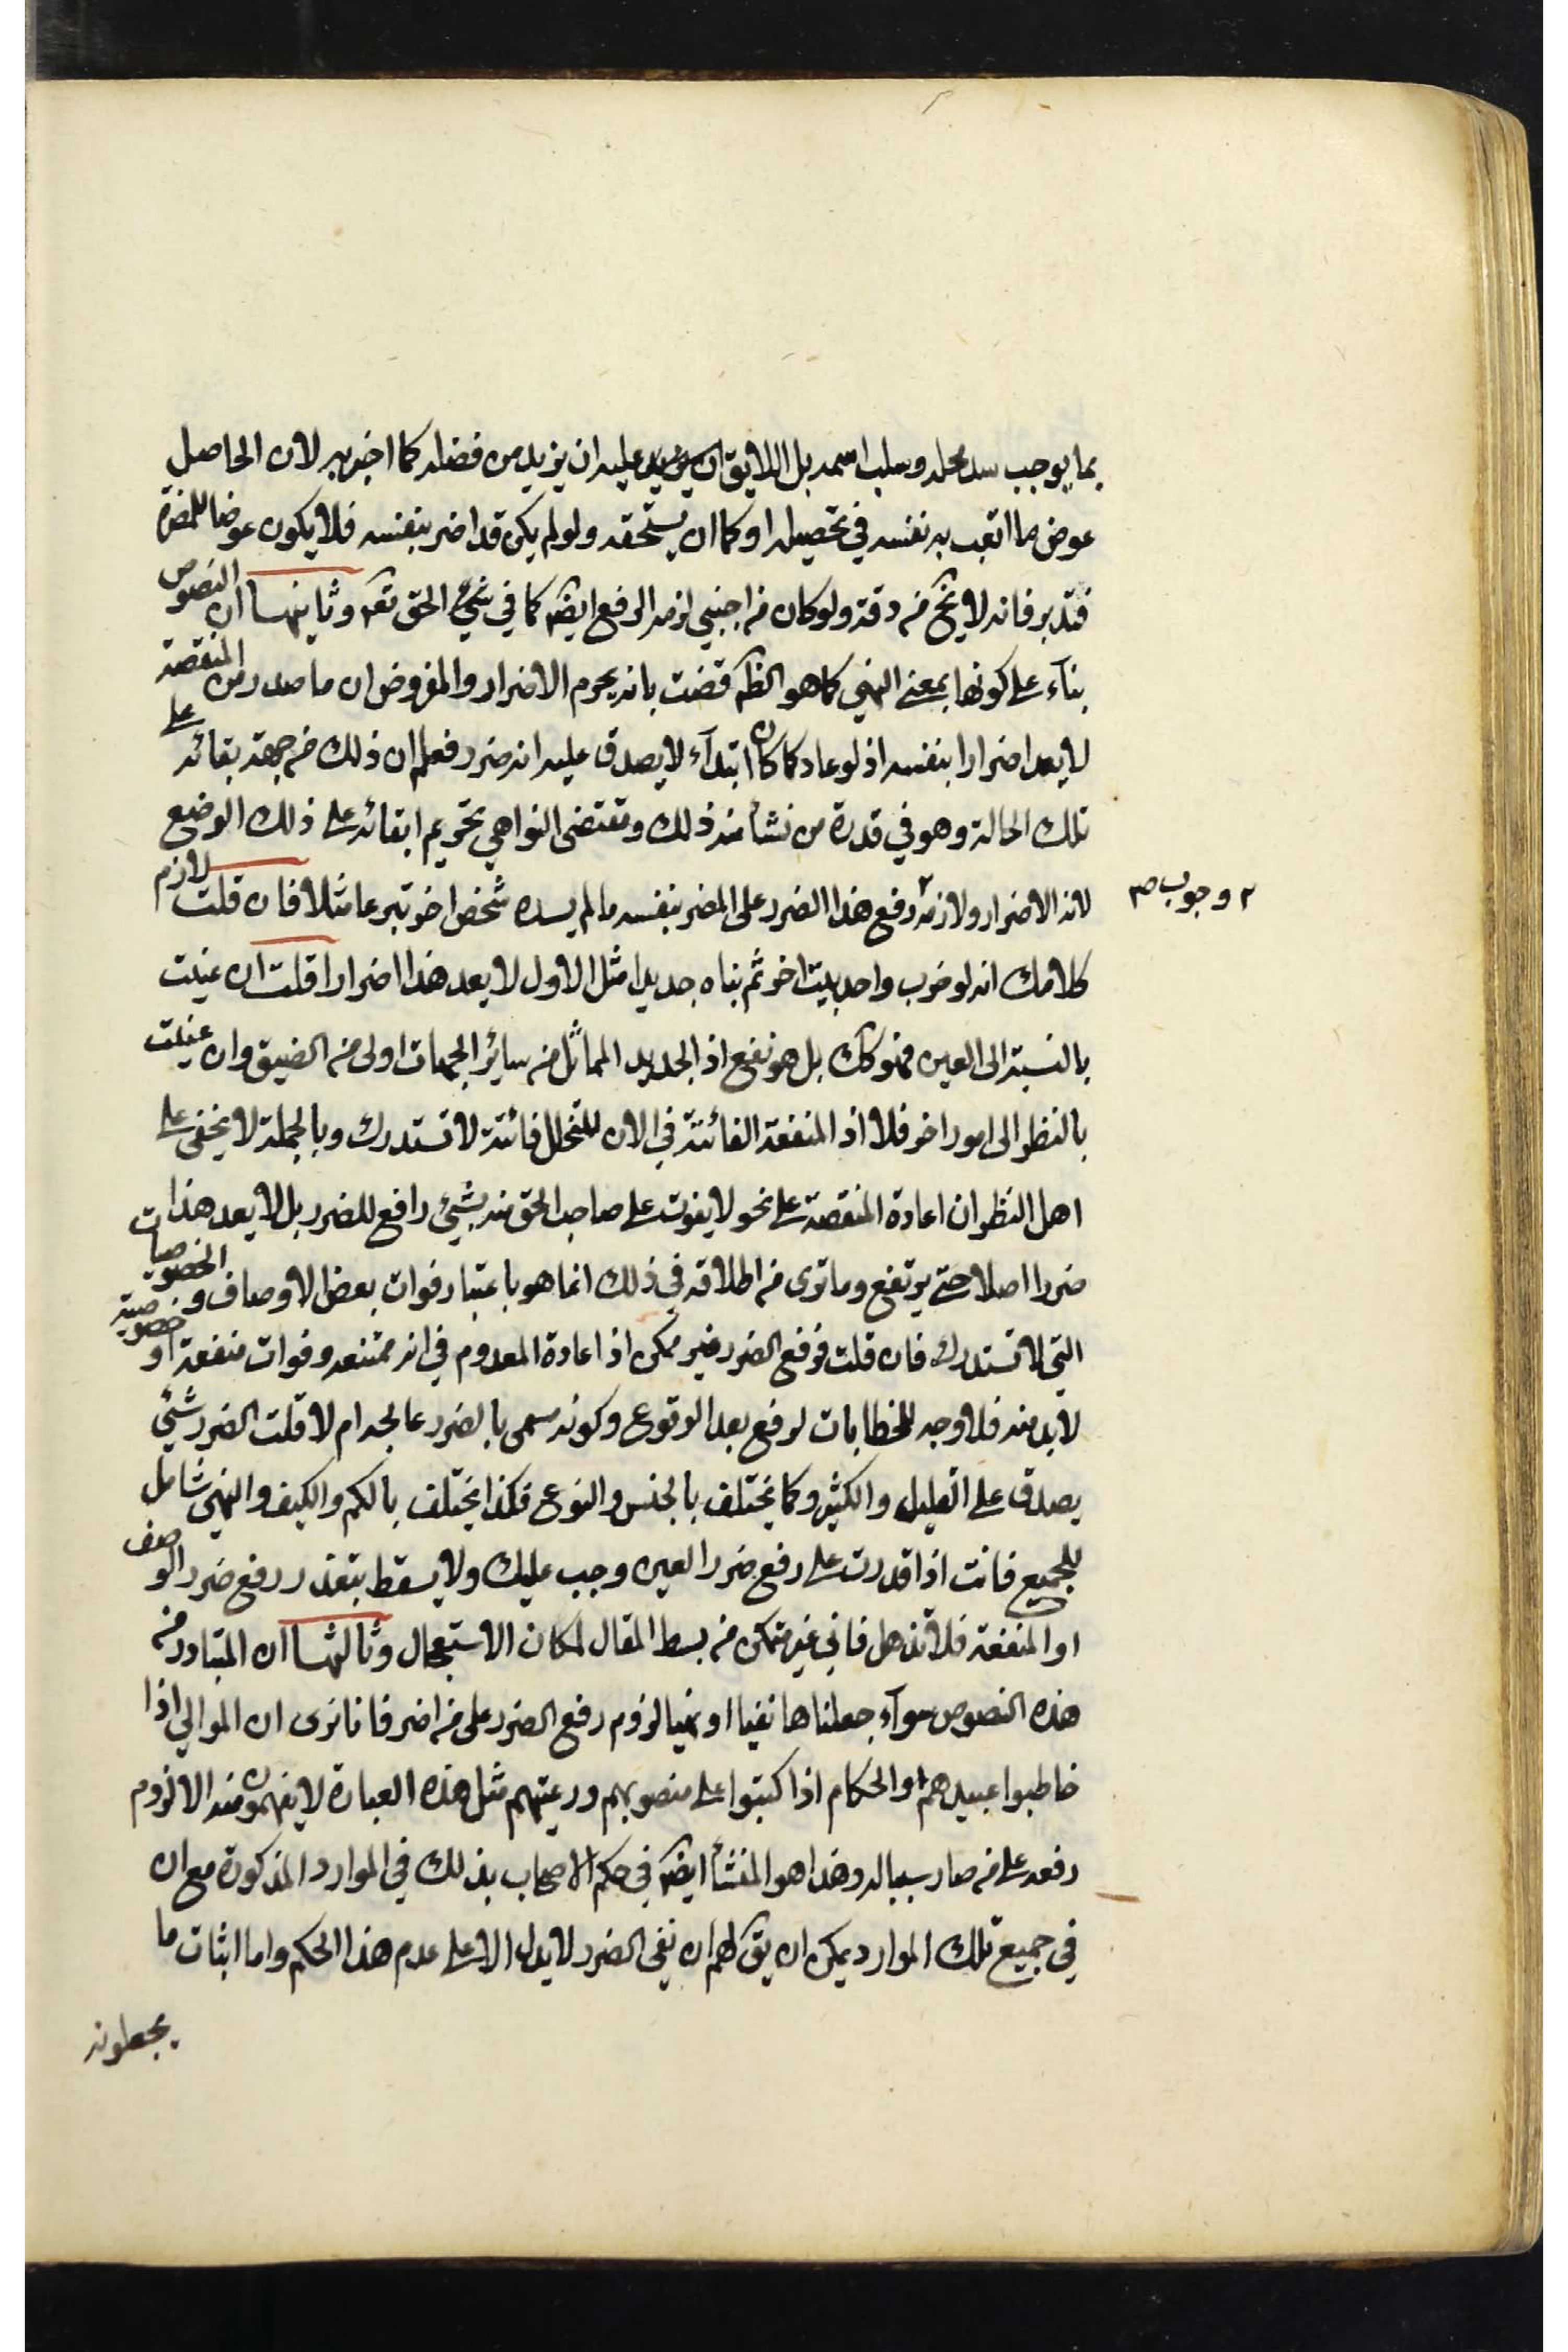 بما يوجب سد محله وسلب اسمه بل اللايق ان عليه ان يزيد من فضله كما اخبر به لان الحاصل
عوض ما اتعب به نفسه في تحصيله او كما ان يستحقه ولو لم يكن قد اضر بنفسه فلا يكون عوضا للمضرة
فتدبر فانه لا يخ من دقة ولو كان من اجنبي لزمه الرفع ايضا كما في شيء الحق تعم وثانيها ان النصوص
بناء على كونها بمعنى النهي كما هو الظ قضت بانه يحرم الاضرار والمفروض ان ما صدر من المنقصة
لا يعد اضرارا بنفسه اذ لو عاد كما كان ابتداء لا يصدق عليه انه ضرر فعلم ان ذلك من جهة بقائه على
تلك الحالة وهو في قدرة من نشأ منه ذلك ومقتضى النواهي تحريم ابقائه على ذلك الوضع
لانه الاضرار ولازمه ٢ رفع هذا الضرر على المضر بنفسه ما لم يسده شخص اخر تبرعا مثلا فان قلت لازم
٢ وجوب صح
كلامك انه لو خرب واحد بيت اخر ثم بناه جديدا مثل الاول لا يعد هذا اضرارا قلت ان عنيت
بالنسبة الى العين فهو كك بل هو نفع اذ الجديد المماثل من سائر الجهات اولى من العتيق وان عنيت
بالنظر الى امور اخر فلا اذ المنفعة الفائتة في الان المتخلل فائتة لا تستدرك وبالجملة لا يخفى على
اهل النظر ان اعادة المنقصة على نحو لا يفوت على صاحب الحق منه شيء رافع للضرر بل لا يعد هذا
ضررا اصلا حتى يرتفع وما ترى من اطلاقه في ذلك انما هو باعتبار فوات بعض الاوصاف والخصوصيات
التي لا تستدرك فان قلت فرفع الضرر غير ممكن اذ اعادة المعدوم في انه ممتنعه وفوات منفعة او خصوصية
لا بد منه فلا وجه للخطابات لرفع بعد الوقوع وكونه مسمى بالضرر عالجه ام لا قلت الضرر شيء
يصدق على القليل والكثير وكما يختلف بالجنس والنوع فكذا يختلف بالكم والكيف والنهي شامل
للجميع فانت اذا قدرت على رفع ضرر العين وجب عليك ولا يسقط بتعذر رفع ضرر الوصف
او المنفعة فلا تذهل فاني غير متمكن من بسط المقال لمكان الاستعجال وثالثها ان المتبادر من
هذه النصوص سواء جعلناها نفيا او نهيا لزوم رفع الضرر على من اضر فانا نرى ان الموالي اذا
خاطبوا عبيدهم او الحكام اذا كتبوا على منصوبهم ورعيتهم مثل هذه العبارة لا يفهمون منه الا لزوم
رفعه على من صار سببا له وهذا هو المنشأ ايضا في حكم الاصحاب بذلك في الموارد المذكورة مع ان
في جميع تلك الموارد يمكن ان يق لهم ان نفي الضرر لا يدل الا على عدم هذا الحكم واما اثبات ما
يجعلونه